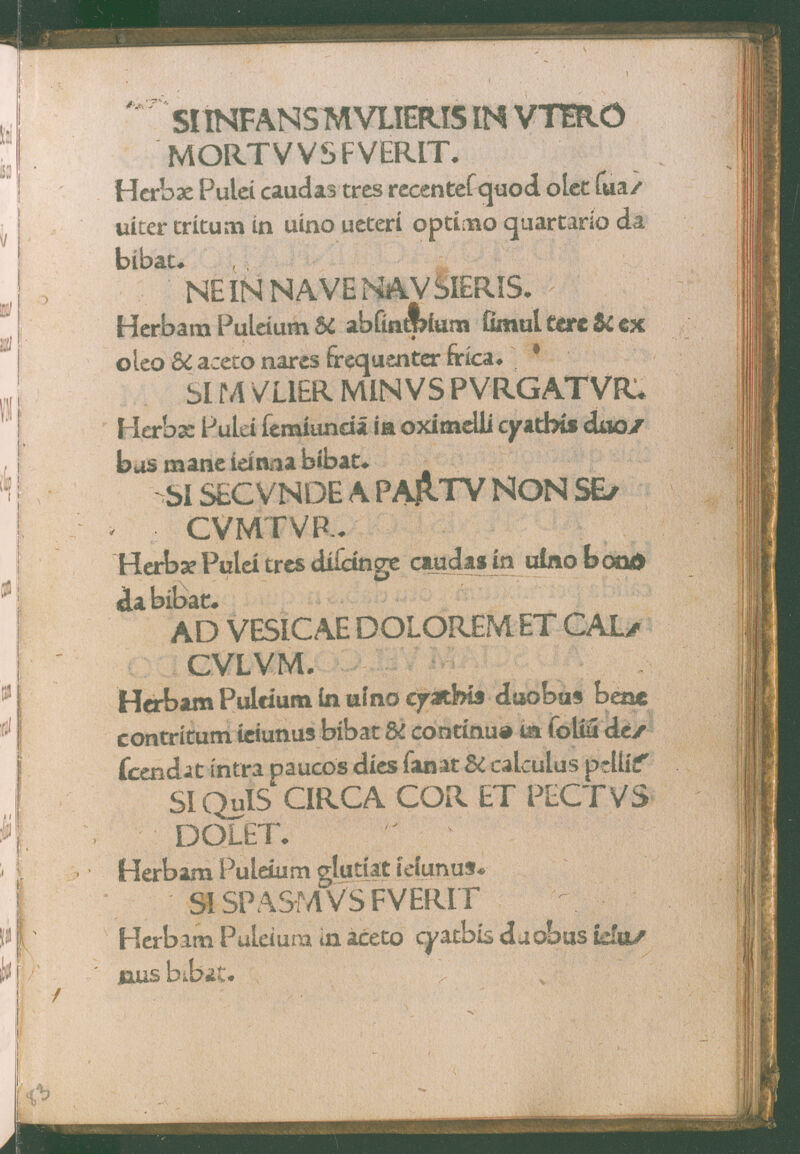 SI INFANS MVLIERIS IN VTERO
MORTVVS FVERIT.
Herbæ Pulei caudas tres recenteſ quod olet ſua⸗
uiter tritum in uino ueteri optimo quartario da
bibat.
NE IN NAVE NAVSIERIS.
Herbam Puleium & abſinthium ſimul tere & ex
oleo & aceto nares frequenter frica.
SI MVLIER MINVS PVRGATVR.
Herbæ Pulei ſemiunciã in oximelli cyathis duo⸗
bus mane ieiuna bibat.
SI SECVNDE A PARTV NON SE⸗
CVMTVR.
Herbæ Pulei tres diſcinge caudas in uino bono
da bibat.
AD VESICAE DOLOREM ET CAL⸗
CVLVM.
Herbam Puleium in uino cyathis duobus bene
contritum ieiunus bibat & continuo in ſoliũ de⸗
ſcendat intra paucos dies ſanat & calculus pellit
SI QuIS CIRCA COR ET PECTVS
DOLET.
Herbam Puleium glutiat ieiunus.
SI SPASMVS FVERIT
Herbam Puleium in aceto cyathis duobus ieiu⸗
nus bibat.
83